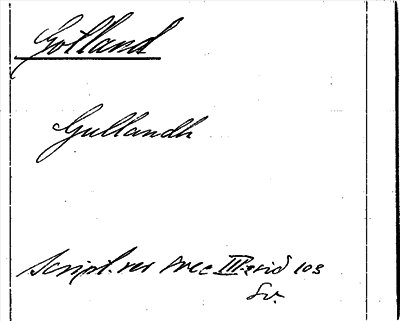 Gotland
Gullandh
Script. rer svec III:2 sid 103
Sv.